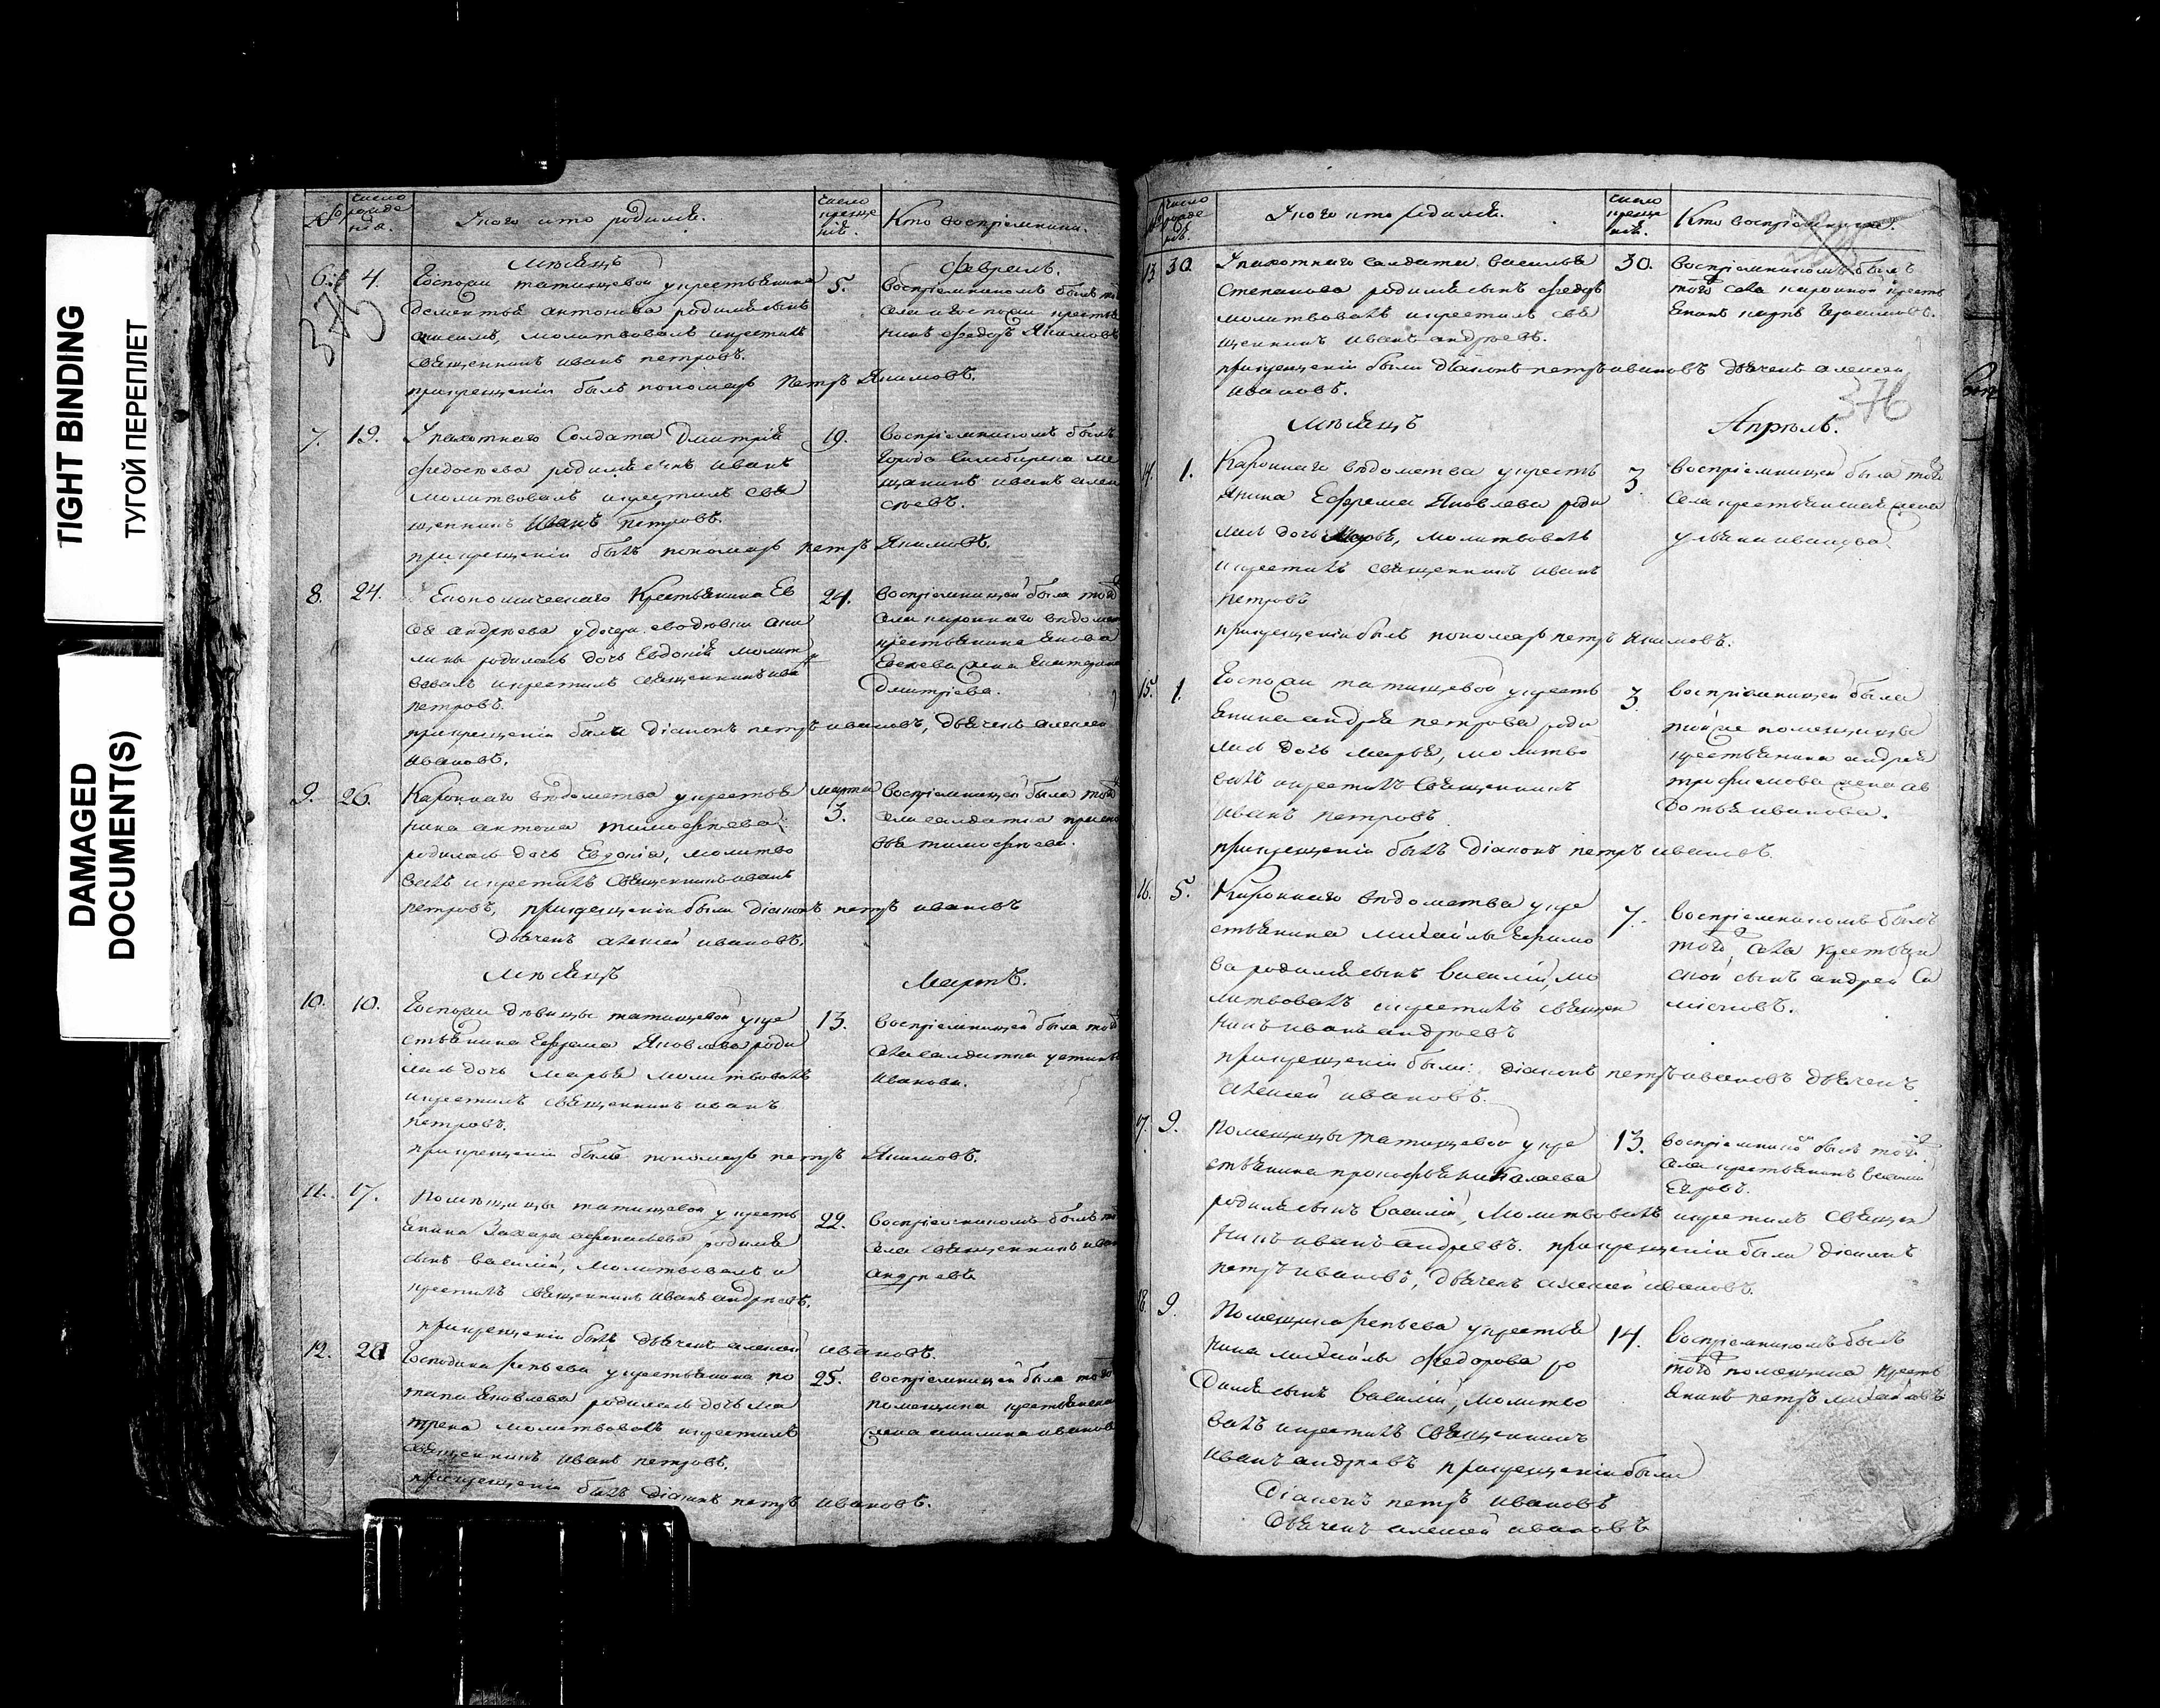 TIGHT BINDING
ТУГОЙ ПЕРЕПЛЕТ
DAMAGED
DOCUMENT(S)
375
№
число рожде нiя.
У кого кто родился.
число креще нiя.
Кто воспрiемники.
Мѣсяцъ
Февраль.
6. 4.
Госпожи татищевой у крестьянина
дементья антонова родился сынъ
молитвовалъ и крестилъ
священникъ иванъ петровъ.
при крещенiи былъ пономарь петръ Якимовъ.
5.
воспрiемникомъ былъ
села и госпожи кресть
нинъ федоръ Якимовъ
7. 19.
У пахотнаго Солдата Дмитрiя
федосѣева родился сынъ иванъ
молитвовалъ и крестилъ свя
щенникъ Иванъ Петровъ.
при крещенiи былъ пономарь петръ Якимовъ.
19.
воспрiемникомъ былъ
города Симбирска ме
щанинъ иванъ алек
сѣевъ.
8. 24.
Економическаго Крестьянина Ев
сея андрѣева у дочери
родилась дочь Евдокiя молит
вовалъ и крестилъ священникъ ива
петровъ.
при крещенiи были дiаконъ петръ ивановъ, дьячекъ алексей
ивановъ.
24.
воспрiемницей была той
села кароннаго вѣдом
крестьянина Якова
Евсеева жена Екатерина
Дмитрiева.
9. 26.
Кароннаго вѣдомства у крестья
нина антона тимофѣева
родилась дочь Евдокiя, молитво
валъ и крестилъ священникъ иванъ
петровъ, при крещенiи были дiаконъ петръ ивановъ
дьячекъ алексей ивановъ.
марта
3.
воспрiемницей была того
села салдатка
тимофѣева.
Мѣсяцъ
Мартъ.
10. 10.
Госпожи дѣвицы татищевой у кре
стьянина Ефрема Яковлева роди
лась дочь Марья молитвовалъ
и крестилъ священникъ иванъ
петровъ.
при крещенiи былъ пономарь петръ Якимовъ.
13.
воспрiемницей была того
села салдатка устинья
Иванова.
11. 17.
Помѣщицы татищевой у кресть
янина Захара афанасьева родился
сынъ василiй, молитвовалъ и
крестилъ священникъ иванъ андрѣевъ.
при крещенiи былъ дьячекъ алексей ивановъ.
22.
воспрiемникомъ былъ то
села священникъ иван
андрѣевъ
12.
Господина репьева у крестьянина по
тапа Яковлева родилась дочь ма
трена молитвовалъ и крестилъ
священникъ иванъ петровъ.
при крещенiи былъ дiаконъ петръ ивановъ.
25.
воспрiемницей была того
помещика крестьянска
жена акилина иванов
№
число рожде нiя.
У кого кто родился.
число креще нiя.
Кто воспрiемники.
376
13 30
У пахотнаго салдата василья
Степанова родился сынъ федоръ
молитвовалъ и крестилъ свя
щенникъ иванъ андрѣевъ.
при крещенiи были дiаконъ петръ ивановъ дьячекъ алексей
ивановъ.
30.
Воспрiемникомъ былъ
того села каронной кресть
янинъ карпъ Герасимовъ.
Мѣсяцъ
Апрѣль.
14. 1.
Кароннаго вѣдомства у кресть
янина Ефрема Яковлева роди
лась дочь Марья, молитвовалъ
и крестилъ священникъ иванъ
петровъ
при крещенiи былъ пономарь петръ Якимовъ.
3.
Воспрiемницей была того
села крестьянская жена
ульяна иванова.
15. 1.
Госпожи татищевой у кресть
янина андрея петрова роди
лась дочь марья, молитво
валъ и крестилъ священникъ
иванъ петровъ
при крещенiи былъ дiаконъ петръ ивановъ.
3.
воспрiемницей была
той же помещицы
крестьянина андрея
трофимова жена ав
дотья иванова.
16. 5.
Кароннаго вѣдомства у кре
стьянина михайлы
ва родился сынъ василiй, мо
литвовалъ и крестилъ священ
никъ иванъ андрѣевъ
при крещенiи были: дiаконъ петръ ивановъ дьячекъ
алексей ивановъ.
7.
воспрiемникомъ былъ
того села крестьян
ской сынъ андрей Са
17. 9.
помещицы татищевой у кре
стьянина прокофья николаева
родился сынъ василiй, молитвовалъ и крестилъ священ
никъ иванъ андрѣевъ. при крещенiи были дiаконъ
петръ ивановъ, дьячекъ алексей ивановъ.
13.
воспрiемникомъ былъ того
села крестьянинъ василiй
Егоровъ.
18. 9.
Помещика репьева у крестья
нина михайлы Федорова ро
дился сынъ Василiй, молитво
валъ и крестилъ священникъ
иванъ андрѣевъ при крещенiи были
Дiаконъ петръ ивановъ
дьячекъ алексей ивановъ
14.
Воспрiемникомъ былъ
того помещика кресть
янинъ петръ михайловъ